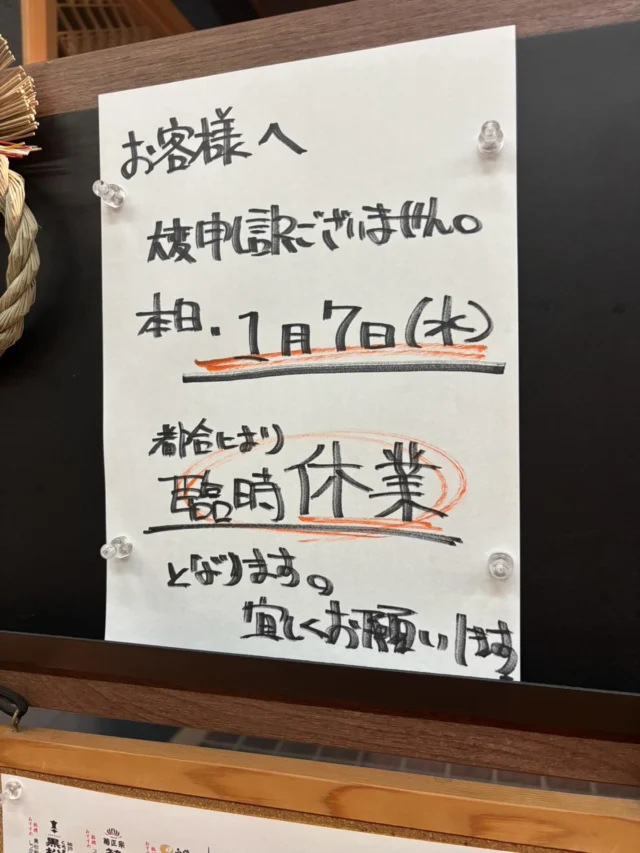 お客様へ
大変申し訳ございません。
本日、1月7日(水)
都合により
臨時休業
となります。
宜しくお願いします
菊正宗